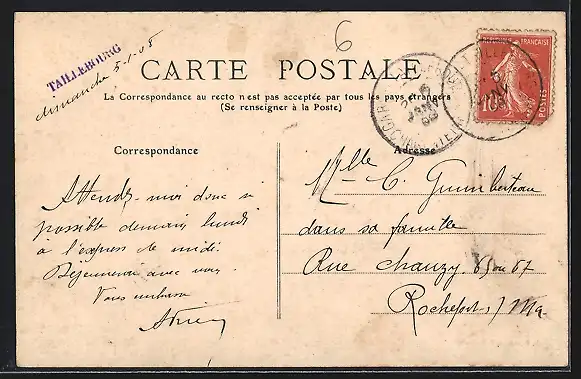 TAILLEBOURG
dimanche 5-1-08
6
CARTE POSTALE
La Correspondance au recto n'est pas acceptée par tous les pays étrangers
(Se renseigner à la Poste)
REPUBLIQUE FRANÇAISE
10
POSTES
Correspondance
Attends-moi donc si
possible demain lundi
à l'express de midi.
Déjeunerai avec vous.
Vous embrasse
Adresse
Mlle C. Guimberteau
dans sa famille
Rue Chanzy 65 ou 67
Rochefort s/ Mer